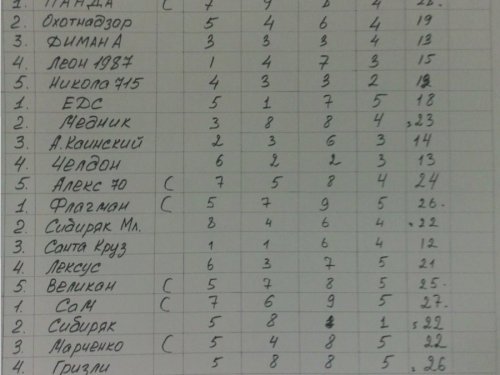 1. ПАНДА С 7 9 8 4 28.
2. Охотнадзор 5 4 6 4 19
3. ДИМАНА 3 3 3 4 13
4. Леон 1987 1 4 7 3 15
5. Никола 715 4 3 3 2 12
1. ЕДС 5 1 7 5 18
2. Медник 3 8 8 4 23
3. А.Каинский 2 3 6 3 14
4. Челдон 6 2 2 3 13
5. Алекс 70 С 7 5 8 4 24
1. Флагман С 5 7 9 5 26.
2. Сибиряк Мл. 8 4 6 4 22
3. Санта Круз 1 1 6 4 12
4. Лексус 6 3 7 5 21
5. Великан С 5 7 8 5 25.
1. СаМ С 7 6 9 5 27.
2. Сибиряк 5 8 1 22
3. Марченко С 5 4 8 5 22
4. Гризли 5 8 8 5 26